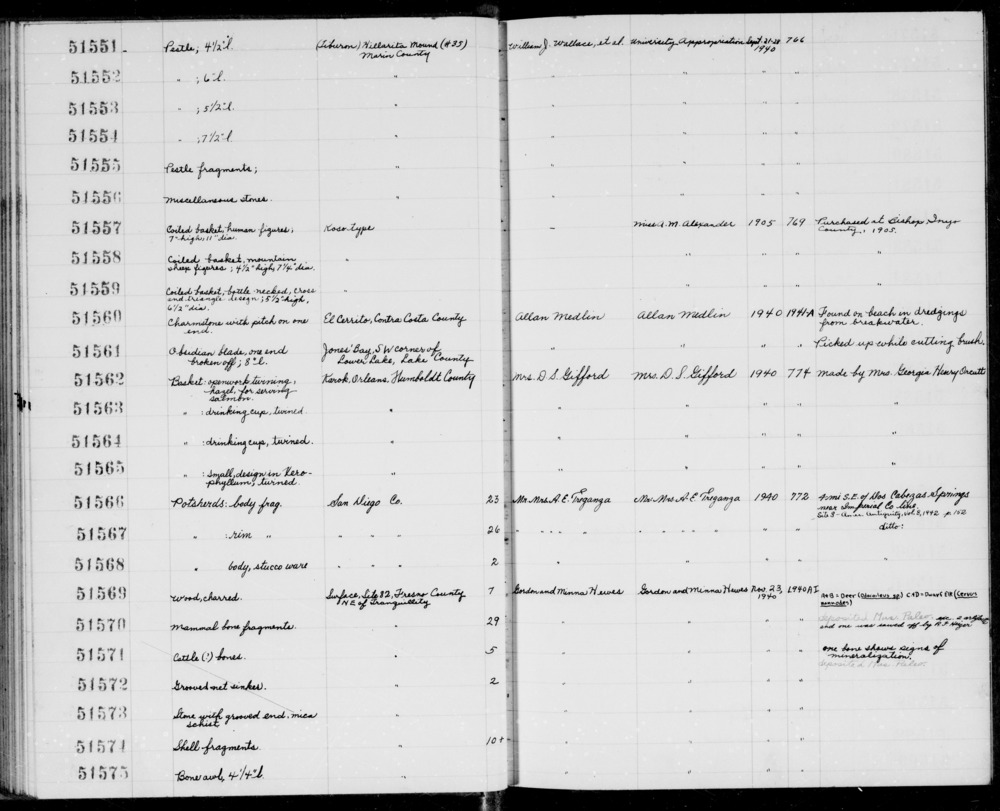 51551 Pestle; 4½" l. (Tiburon) Hillarita Mound (#35) William J. Wallace, et al. University Appropriation Sept. 21-28 766
Marin County 1940
51552 " ; 6" l. " " " " "
51553 " ; 5½" l. " " " " "
51554 " ; 7½" l. " " " " "
51555 Pestle fragments; " " " " "
51556 Miscellaneous stones. " " " " "
51557 Coiled basket, human figures; Koso type – Miss A. M. Alexander 1905 769 Purchased at Bishop Inyo
7" high, 11" dia. County, 1905.
51558 Coiled basket, mountain " " " " " "
sheep figures; 4½" high, 7¼" dia.
51559 Coiled basket, bottle-necked, cross " " " " "
and triangle design; 5½" high,
6½" dia.
51560 Charmstone with pitch on one El Cerrito, Contra Costa County Allan Medlin Allan Medlin 1940 1940A Found on beach in dredgings
end. from breakwater.
51561 Obsidian blade, one end Jones' Bay, SW corner of " " " " Picked up while cutting brush.
broken off; 8" l. Lower Lake, Lake County
51562 Basket: openwork twining, Karok, Orleans, Humboldt County Mrs. D S Gifford Mrs. D. S. Gifford 1940 774 Made by Mrs. Georgia Henry Orcutt
hazel, for serving
salmon.
51563 " : drinking cup, twined. " " " " " "
51564 " : drinking cup, twined. " " " " " "
51565 " : Small, design in Xero- " " " " " "
phyllum, twined.
51566 Potsherds: body frag. San Diego Co. 23 Mr. Mrs. A. E. Treganza Mr. Mrs. A E Treganza 1940 772 4 mi S.E. of Dos Cabezas Springs
near Imperial Co line.
Site 8 - Amer. Antiquity, vol. 8, 1942 p. 152
51567 " : rim " " " " 26 " " " " ditto:
51568 " body, stucco ware " " " 2 " " " " "
51569 Wood, charred. Surface, Site 82, Fresno County 7 Gordon and Minna Hewes Gordon and Minna Hewes Nov. 23, 1940AI
NE of Tranquillity 1940
A+B = Deer (Odocoileus sp) C+D = Dwarf Elk (Cervus
nannodes)
51570 Mammal bone fragments. " 29 " " " "
Deposited Mus. Paleo.
and one was sawed off by R. F. Heizer
51571 Cattle (?) bones. " 5 " " " " one bone shows signs of
mineralization.
deposited Mus. Paleo.
51572 Grooved net sinker. " 2 " " " "
51573 Stone with grooved end, mica " " " " "
schist
51574 Shell fragments. " 10+ " " " "
51575 Bone awl, 4¼" l. " " " " "